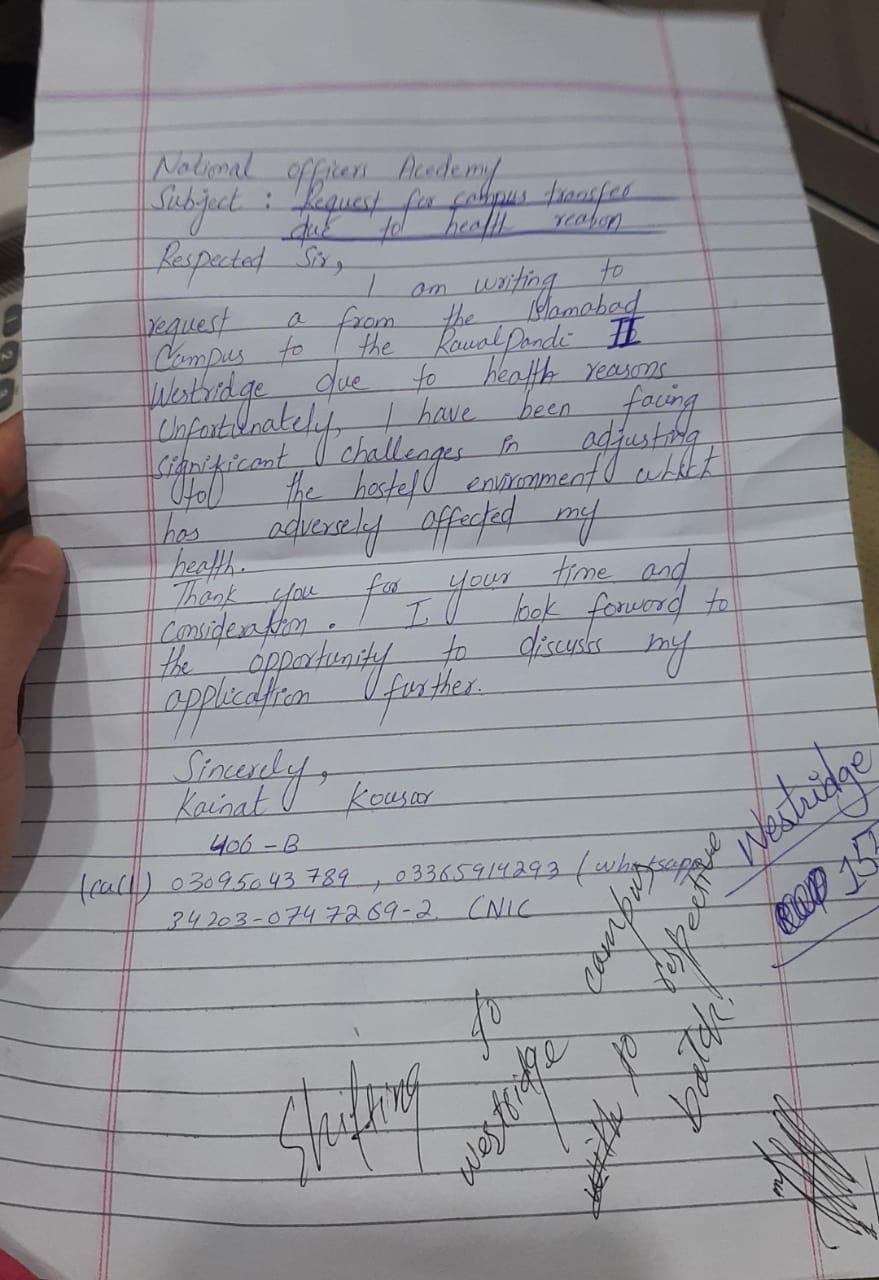 National officers Acedemy
Subject : Request for campus transfer
due to health reason
Respected Sir,
I am writing to
request a from the Islamabad
Campus to the RawalPandi II
Westridge due to health reasons
Unfortunately, I have been facing
significant challenges in adjusting
to the hostel environment which
has adversely affected my
health.
Thank you for your time and
consideration. I look forword to
the opportunity to discusss my
application further.
Sincerely,
Kainat Kousar
406-B
(call) 03095043789 , 03365914293 (whatsapp
34203-0747269-2 CNIC
Westridge
15
Shifting to campus
westridge to respective
batch.